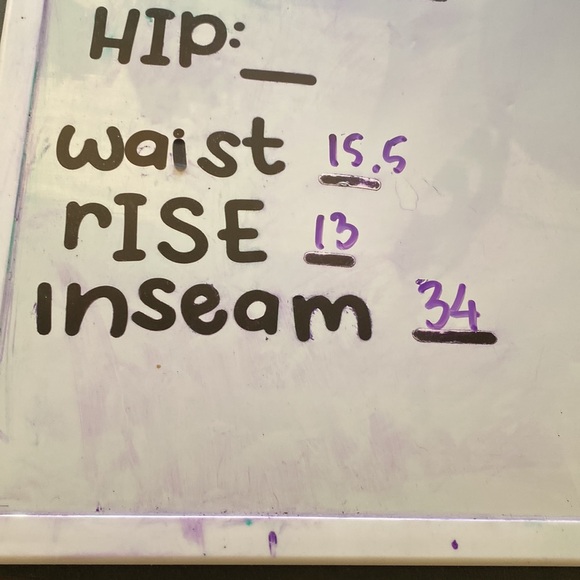 HIP: __
waist 15.5
rISE 13
Inseam 34